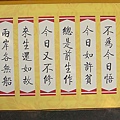 不為今日悟
今日如許貧
總是前生作
今日又不修
來生還如故
兩岸各無船